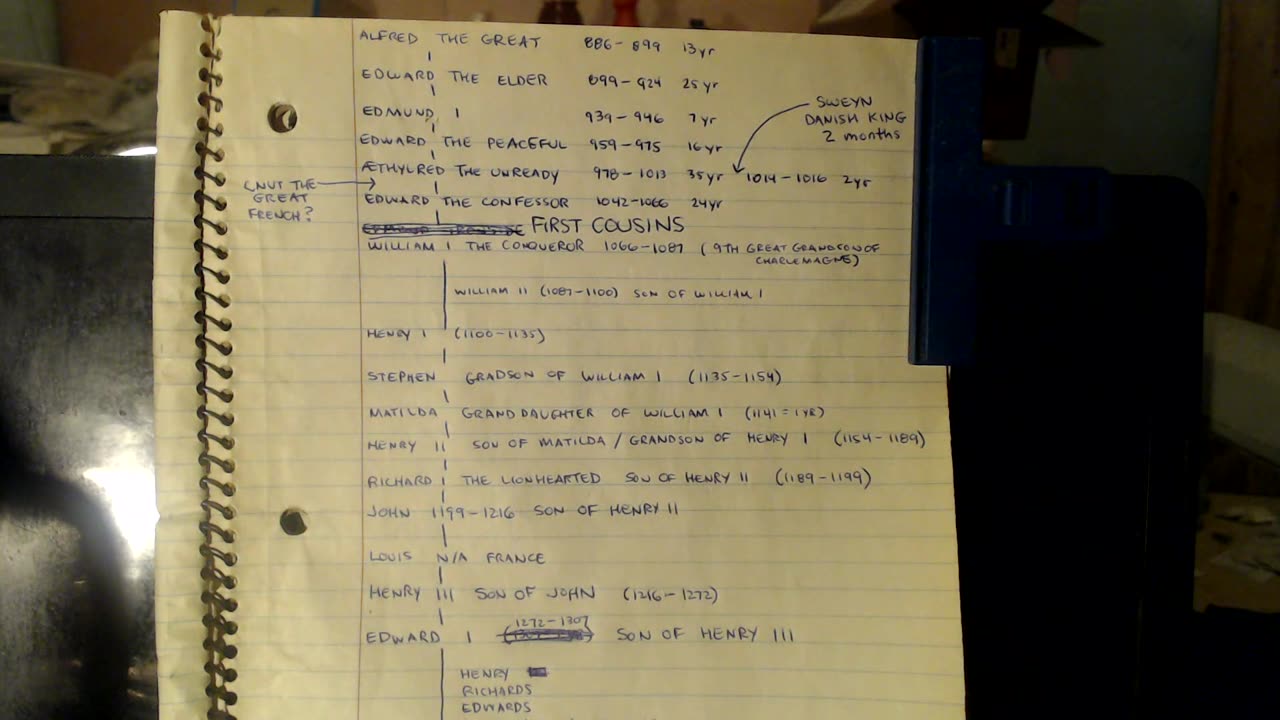 ALFRED THE GREAT 886-899 13yr
EDWARD THE ELDER 899-924 25yr
EDMUND I 939-946 7yr
SWEYN
DANISH KING
2 months
EDWARD THE PEACEFUL 959-975 16yr
ÆTHYLRED THE UNREADY 978-1013 35yr 1014-1016 2yr
CNUT THE
GREAT
FRENCH?
EDWARD THE CONFESSOR 1042-1066 24yr
FIRST COUSINS
WILLIAM I THE CONQUEROR 1066-1087 (9TH GREAT GRANDSON OF
CHARLEMAGNE)
WILLIAM II (1087-1100) SON OF WILLIAM I
HENRY I (1100-1135)
STEPHEN GRADSON OF WILLIAM I (1135-1154)
MATILDA GRANDDAUGHTER OF WILLIAM I (1141 = 1YR)
HENRY II SON OF MATILDA / GRANDSON OF HENRY I (1154-1189)
RICHARD I THE LIONHEARTED SON OF HENRY II (1189-1199)
JOHN 1199-1216 SON OF HENRY II
LOUIS N/A FRANCE
HENRY III SON OF JOHN (1216-1272)
1272-1307
EDWARD I SON OF HENRY III
HENRY
RICHARDS
EDWARDS